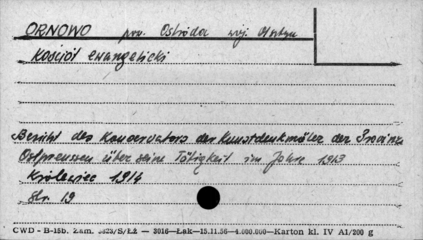 ORNOWO pow. Ostróda woj. Olsztyn
Kościół ewangelicki
Bericht des Konservators der Kunstdenkmäler der Provinz
Ostpreussen über seine Tätigkeit im Jahre 1913
Królewiec 1914
str. 19
CWD - B-15b. Zam. S/Łż — 2016—Łak—15.11.56—4.000.000—Karton kl. IV A1/200 g